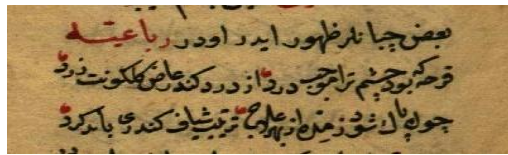 بعض چبانلر ظهور ایدر اودر رباعیته
قرحه که بود چشم ترا موجب درد از درد کند عارض گلگونت زرد
چون پاک شود ز مده از بهر علاج ترتیب شیاف کندری باید کرد